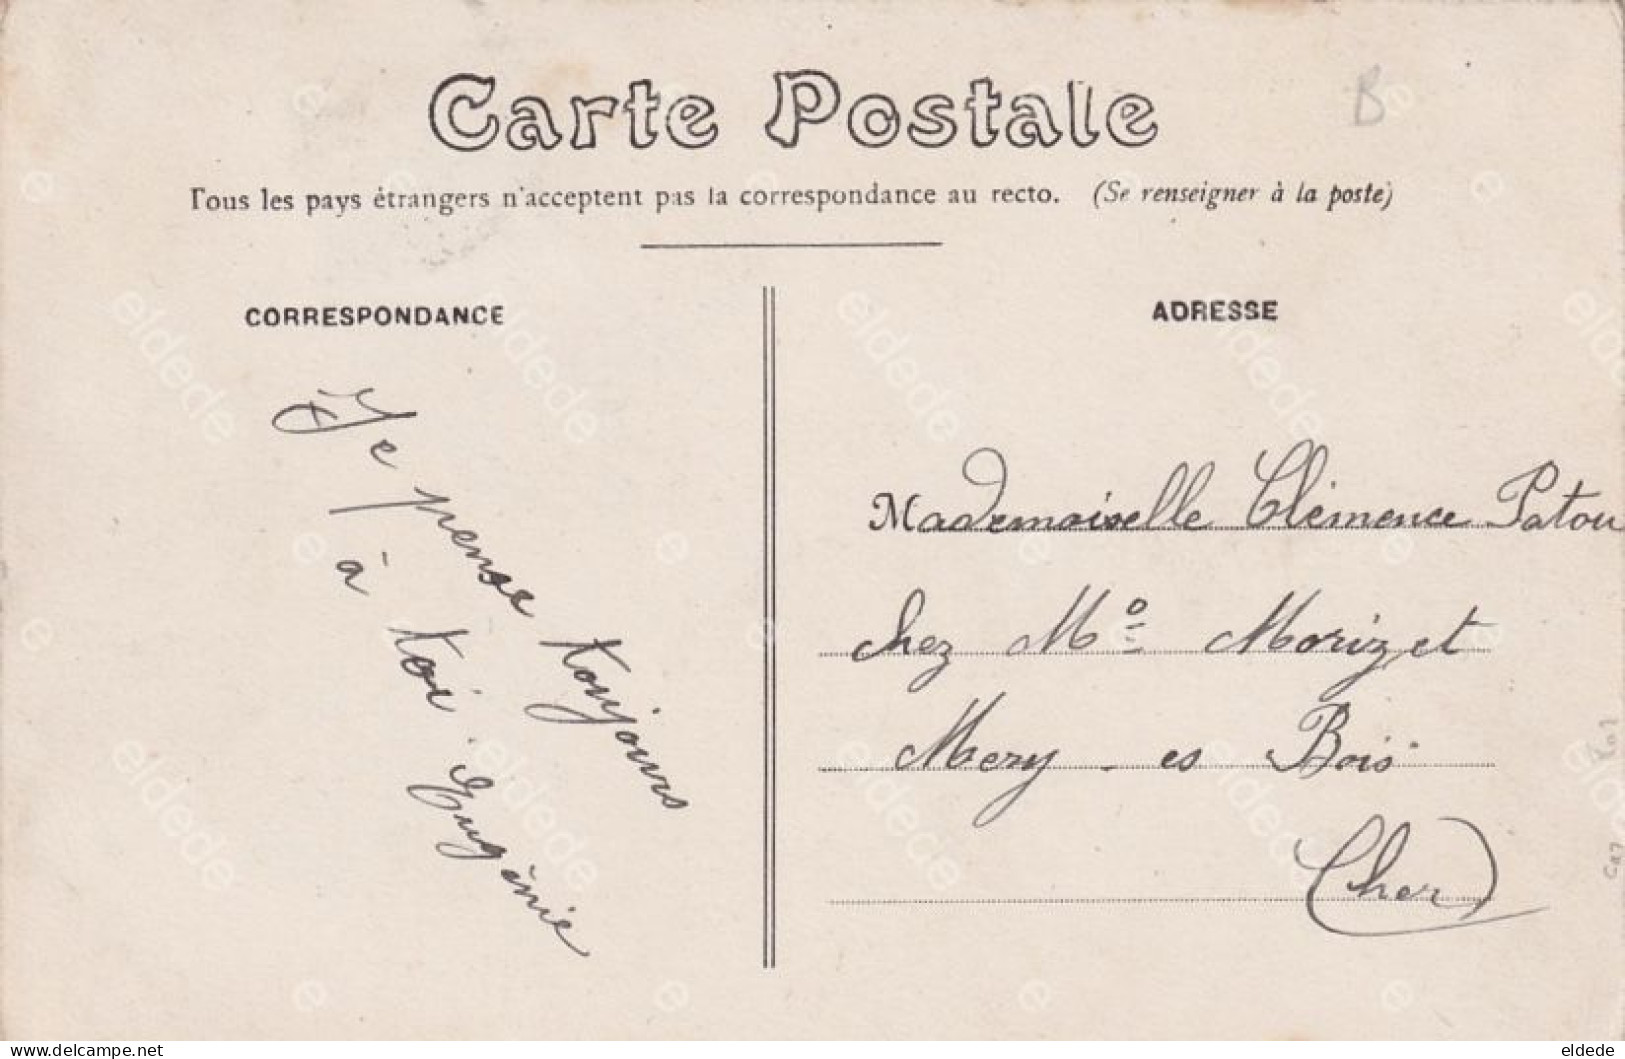 Carte Postale
B
Tous les pays étrangers n'acceptent pas la correspondance au recto. (Se renseigner à la poste)
CORRESPONDANCE
Je pense toujours
à toi
Eugénie
ADRESSE
Mademoiselle Clémence Patou
chez Mº Morizet
Mery - es Bois
(Cher)
eldede